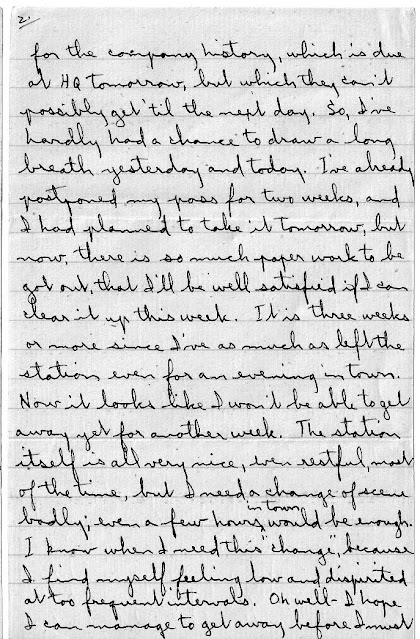 2.
for the company history, which is due
at HQ tomorrow, but which they can't
possibly get 'til the next day. So, I've
hardly had a chance to draw a long
breath yesterday and today. I've already
postponed my pass for two weeks, and
I had planned to take it tomorrow, but
now, there is so much paper work to be
got out, that I'll be well satisfied if I can
clear it up this week. It is three weeks
or more since I've as much as left the
station even for an evening in town.
Now it looks like I won't be able to get
away yet for another week. The station
itself is all very nice, even restful, most
of the time, but I need a change of scene
badly; even a few hours in town would be enough.
I know when I need this "change", because
I find myself feeling low and dispirited
at too frequent intervals. Oh well - I hope
I can manage to get away before I must